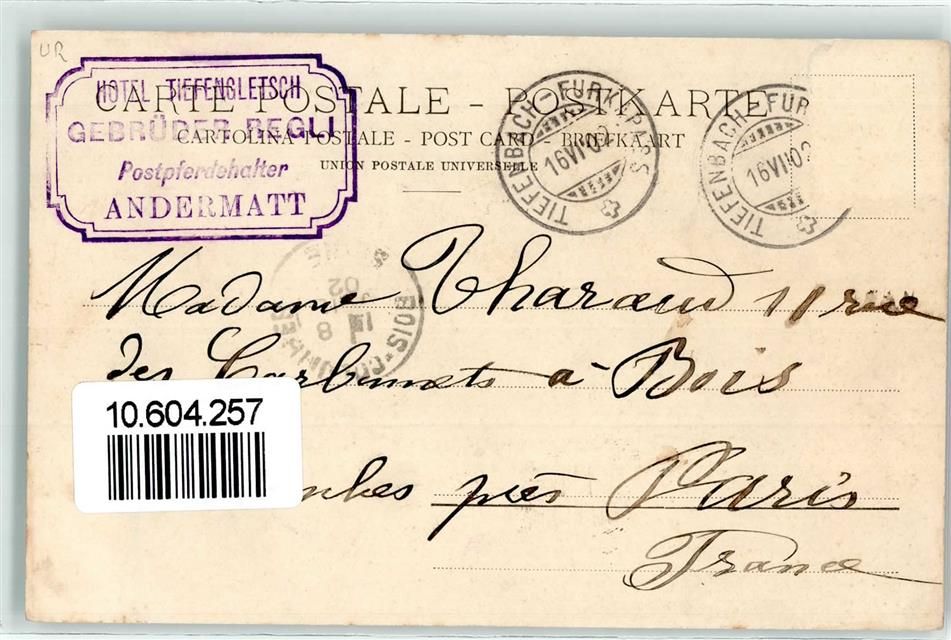 UR
HOTEL TIEFENGLETSCH
GEBRÜDER REGLI
Postpferdehalter
ANDERMATT
CARTE POSTALE - POSTKARTE
CARTOLINA POSTALE - POST CARD - BRIEFKAART
UNION POSTALE UNIVERSELLE
TIEFENBACH-FURKAPASS
16 VII 02
TIEFENBACH-FUR
16 VII 02
BOIS-CO
02
8
Madame Tharaud 11 rue
des Carbonnets à Bois
mbes près Paris
France
10.604.257